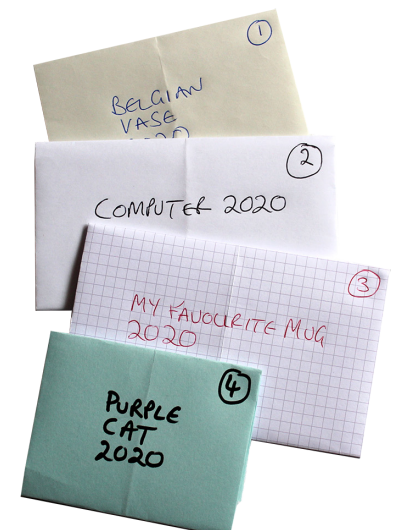 1
BELGIAN
VASE
2020
2
COMPUTER 2020
3
MY FAVOURITE MUG
2020
4
PURPLE
CAT
2020